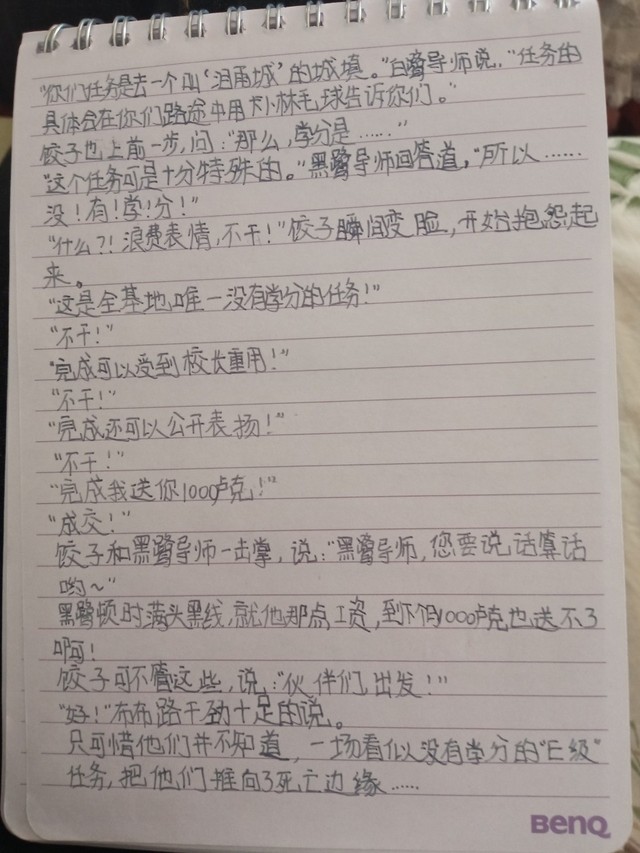 "你们任务是去一个叫'泪雨城'的城填。"白鹭导师说,"任务的
具体会在你们路途中用卡林毛球告诉你们。"
饺子也上前一步,问:"那么,学分是……"
"这个任务可是十分特殊的。"黑鹭导师回答道,"所以……
没!有!学!分!"
"什么?!浪费表情,不干!"饺子瞬间变脸,开始抱怨起
来。
"这是全基地唯一没有学分的任务!"
"不干!"
"完成可以受到校长重用!"
"不干!"
"完成还可以公开表扬!"
"不干!"
"完成我送你1000卢克!"
"成交!"
饺子和黑鹭导师一击掌,说:"黑鹭导师,您要说话算话
哟~"
黑鹭顿时满头黑线,就他那点工资,到下个月1000卢克也送不了
啊!
饺子可不管这些,说:"伙伴们,出发!"
"好!"布布路干劲十足的说。
只可惜他们并不知道,一场看似没有学分的"E级"
任务,把他们推向了死亡边缘……
BenQ